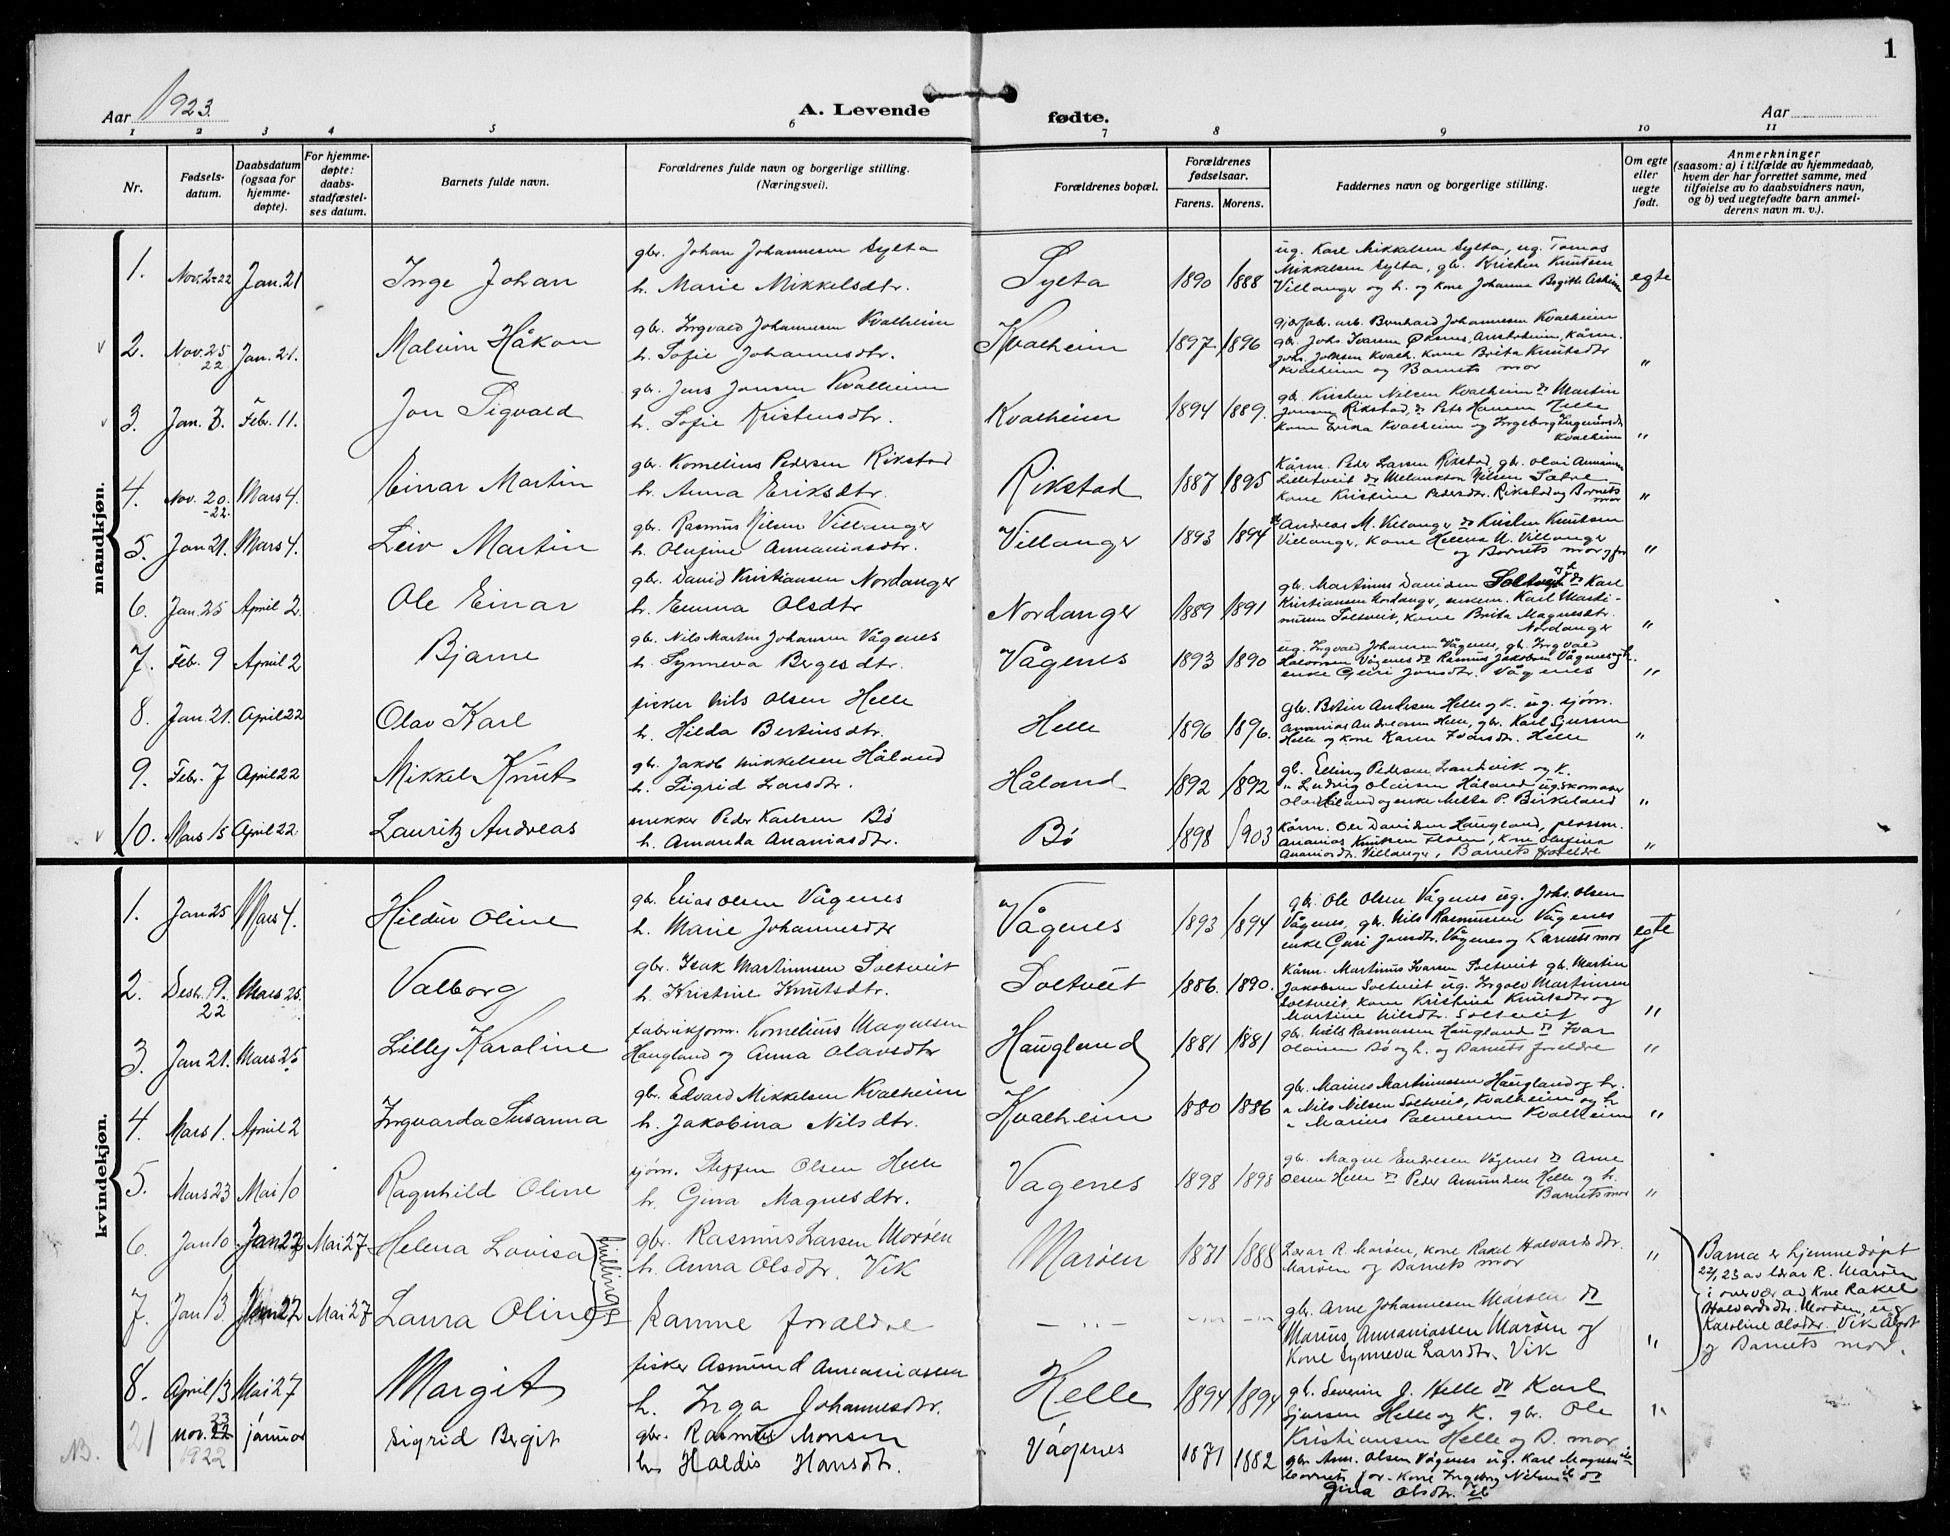 1
Aar 1923.
A. Levende fødte.
Aar
1 2 3 4 5 6 7 8 9 10 11
Nr.
Fødsels-
datum.
Daabsdatum
(ogsaa for
hjemme-
døpte).
For hjemme-
døpte:
daabs-
stadfæstel-
ses datum.
Barnets fulde navn.
Forældrenes fulde navn og borgerlige stilling.
(Næringsvei).
Forældrenes bopæl.
Forældrenes
fødselsaar.
Farens. Morens.
Faddernes navn og borgerlige stilling.
Om egte
eller
uegte
født.
Anmerkninger
(saasom: a) i tilfælde av hjemmedaab,
hvem der har forrettet samme, med
tilføielse av to daabsvidners navn,
og b) ved uegtefødte barn anmel-
derens navn m. v.).
mandkjøn.
1. Nov. 2-22 Jan. 21 Inge Johan
gbr. Johan Johannesen Sylta
h. Marie Mikkelsdtr.
Sylta 1890 1888
ug. Karl Mikkelsen Sylta, ug. Tomas
Mikkelsen Sylta, gb. Kristen Knutsen
Villanger og h. og kone Johanne Birgitte
egte
2. Nov. 25 22 Jan. 21. Malvin Håkon
gbr. Ingvald Johannesen Kvalheim
h. Sofie Johannesdtr.
Kvalheim 1897. 1896
arb. Bernhard Johannesen Kvalheim
gbr. Johs Ivarsen Øksnes, kårm.
Johs. Johnsen Kvalh. kone Brita Knutsdtr
Kvalheim og Barnets mor
"
3. Jan. 3. Febr. 11. Jon Sigvald
gbr. Jens Jonsen Kvalheim
h. Sofie Kristensdtr.
Kvalheim 1894 1889.
gb. Kristen Nilsen Kvalheim do Martin
Jonsen Rikstad, do Peter Hansen Helle
kone Erika Kvalheim og Ingeborg
Kvalheim
"
4. Nov. 20. -22. Mars 4. Einar Martin
gbr. Kornelius Pedersen Rikstad
h. Anna Eriksdtr.
Rikstad 1887 1895
Kårm. Peder Larsen Rikstad, gb. Olai
Lilletveit do Melankton Nilsen Sætre
kone Kristine Pedersdtr. Rikstad og Barnets
mor
"
5. Jan 21. Mars 4. Leiv Martin
gbr. Rasmus Nilsen Villanger
h. Olufine Annaniasdtr.
Villanger 1893 1894
Andreas M. Vilanger do Kristen Knutsen
Villanger, kone Helene N. Villanger
og Barnets mor
"
6. Jan. 25 April 2. Ole Einar
gbr. David Kristiansen Nordanger
h. Emma Olsdtr
Nordanger 1889 1891
gb. Martinus Davidsen Soltveit do Karl
Kristiansen Nordanger, enkem. Karl Marti-
nusen Soltveit, Kone Brita Magnesdtr.
Nordanger
"
7. Feb. 9 April 2 Bjarne
gbr. Nils Martin Johansen Vågenes
h. Synneva Bergesdtr.
Vågenes 1893 1890
ug. Ingvald Johansen Vågenes, gb. Ingvald
Halvorsen Vågenes do Rasmus Jakobsen Vågenes
enke Guri Jonsdtr. Vågenes
"
8. Jan. 21. April 22 Olav Karl
fisker Nils Olsen Helle
h. Hilda Bertinsdtr.
Helle 1896 1896.
gbr. Bertin Andersen Helle og k. ug. sjøm.
Ananias Andreasen Helle, gbr. Karl Sjursen
Helle og kone Karen Ivarsdtr. Helle
"
9. Febr. 7 April 22 Mikkel Knut
gb. Jakob Mikkelsen Håland
h. Sigrid Larsdtr.
Håland 1892 1892
gb. Elling Pedersen Landvik og k.
" Ludvig Olaisen Håland ug. skomaker
Håland og enke Mette P. Birkeland
"
10. Mars 15 April 22 Lauritz Andreas
snekker Peder Karlsen Bø
h. Amanda Ananiasdtr.
Bø 1898 1903
Kårm. Ole Davidsen Haugland,
Ananias Knutsen, Kone Olufine
Ananiasdtr. Villanger, Barnets foreldre
"
kvindekjøn.
1. Jan 25 Mars 4. Hildur Oline
gb. Elias Olsen Vågenes
h. Marie Johannesdtr
Vågenes 1893 1894
gbr. Ole Olsen Vågenes ug. Johs. Olsen
Vågenes, gb. Nils Rasmussen Vågenes
enke Guri Jonsdtr. Vågenes og Barnets mor
egte
2. Desbr. 9. 22 Mars 25. Valborg
gbr. Isak Martinusen Soltveit
h. Kristine Knutsdtr.
Soltveit 1886. 1890.
Kårm. Martinus Ivarsen Soltveit gb. Martin
Jakobsen Soltveit ug. Ingolv Martinusen
Soltveit, kone Kristina Knutsdtr og
Martine Nilsdtr. Soltveit
"
3. Jan 21. Mars 25 Lilly Karoline
fabrikform. Kornelius Magnesen
Haugland og Anna Olavsdtr
Haugland 1881 1881
gbr. Nils Rasmussen Haugland do Ivar
Olaisen Bø og h. og Barnets foreldre
"
4. Mars 1. April 2 Ingvarda Susanna
gbr. Edvard Mikkelsen Kvalheim
h. Jakobina Nilsdtr.
Kvalheim 1880 1886
gbr. Marius Martinusen Haugland og h.
" Nils Nilsen Soltveit, Kvalheim og h
" Marius Palmesen Kvalheim
"
5. Mars 23 Mai 10 Ragnhild Oline
sjøm. Steffen Olsen Helle
h. Gina Magnesdtr.
Vågenes 1898 1898
gb. Magne Endresen Vågenes do Arne
Olsen Helle do Peder Amundsen Helle og h.
Barnets mor
"
6. Jan 10 Jan 22 Mai 27 Helena Lovisa
tvillinger
gbr. Rasmus Larsen Marøen
h. Anna Olsdtr. Vik
Marøen 1871 1888
Lærar R. Marøen, kone Rakel Halvardsdtr.
Marøen og Barnets mor
"
Barna er hjemmedøpt
22/1 23 av lærar R. Marøen
i overvær av kone Rakel
Halvardsdtr. Marøen, ug
Karoline Olsdtr. Vik
og Barnets mor.
7. Jan 13 Jan 22 Mai 27 Laura Oline
samme forældre
- " -
gbr. Arne Johannesen Marøen do
Marius Annaniassen Marøen og
Kone Synneva Larsdtr. Vik
"
8. April 13 Mai 27 Margit
fisker Asmund Annaniassen
h. Inga Johannesdtr.
Helle 1894 1894
gb. Severin J. Helle do Karl
Sjursen Helle og K. gbr. Ole
Kristiansen Helle og B. mor
"
NB. 21 nov. 23 1922 januar Sigrid Bergit
gbr. Rasmus Monsen
h. Haldis Hansdtr.
Vågenes 1871 1882
gbr. Ans. Olsen Vågenes ug. Karl Magnesen
barnets far - Kone Ingeborg Nilsen do
Gina Olsdtr.